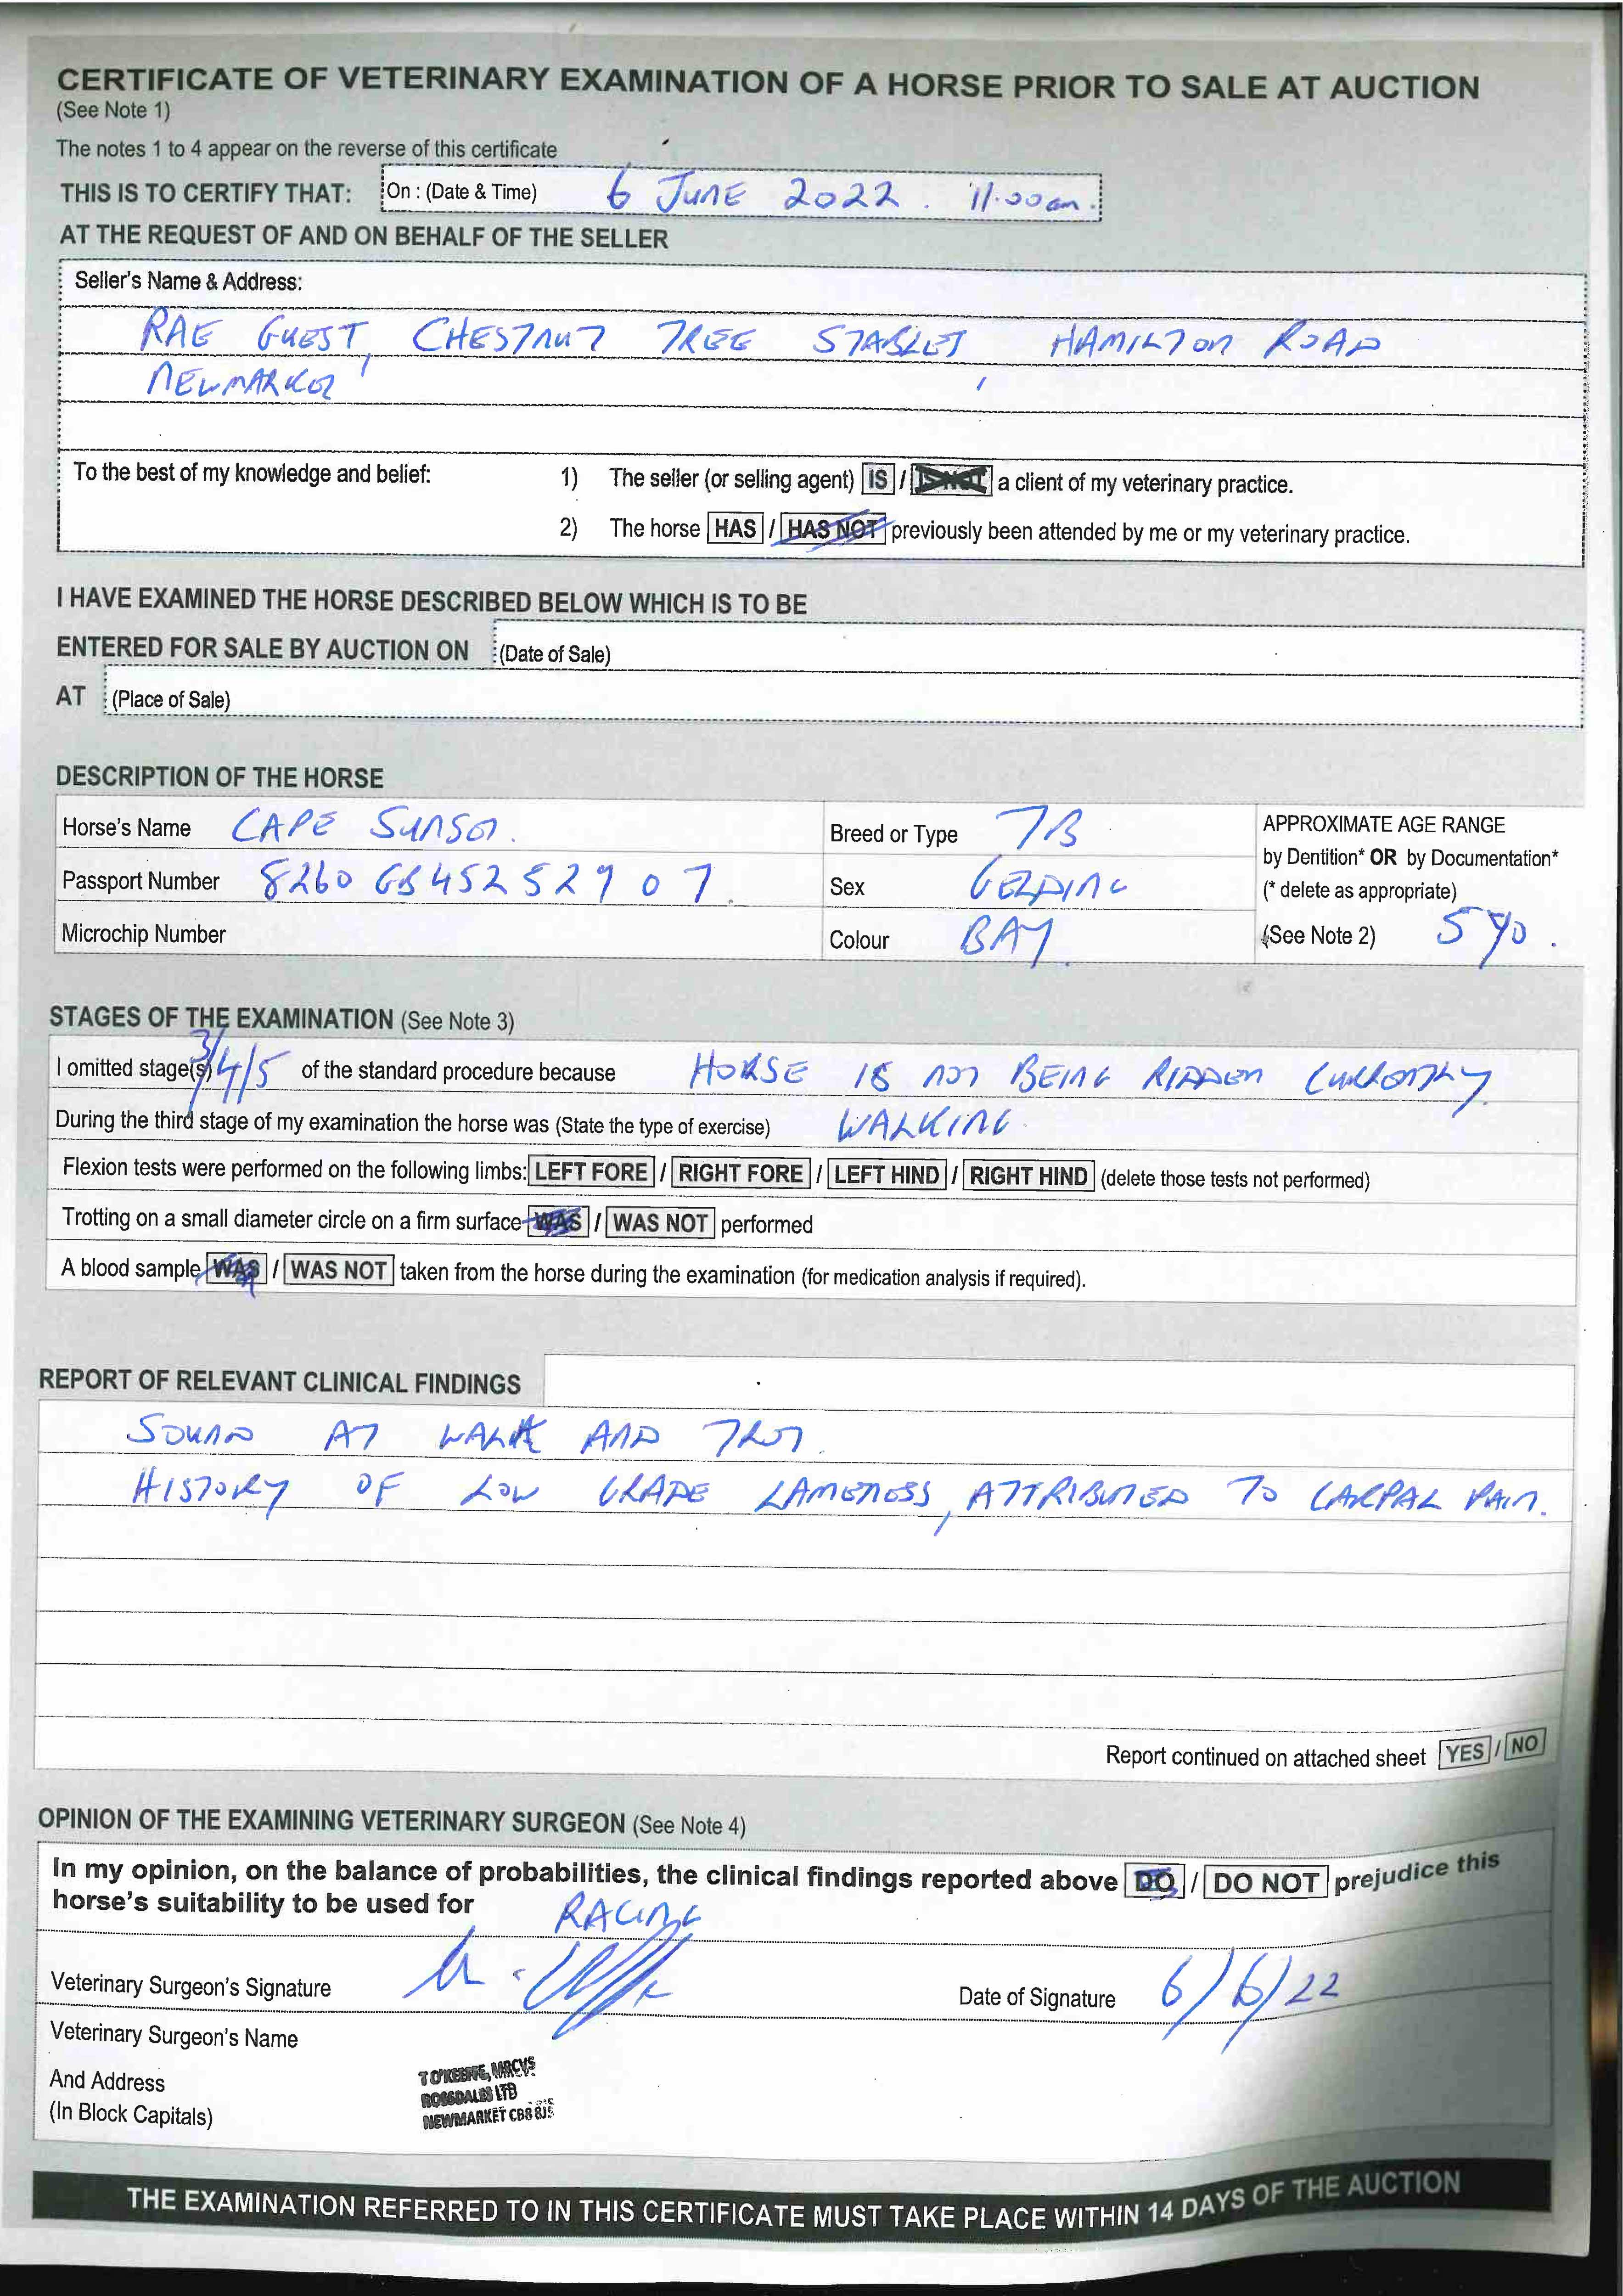 CERTIFICATE OF VETERINARY EXAMINATION OF A HORSE PRIOR TO SALE AT AUCTION
(See Note 1)
The notes 1 to 4 appear on the reverse of this certificate
THIS IS TO CERTIFY THAT: On : (Date & Time) 6 JUNE 2022. 11.00am.
AT THE REQUEST OF AND ON BEHALF OF THE SELLER
Seller's Name & Address:
RAE GUEST, CHESTNUT TREE STABLES, HAMILTON ROAD
NEWMARKET
To the best of my knowledge and belief: 1) The seller (or selling agent) IS / IS NOT a client of my veterinary practice.
2) The horse HAS / HAS NOT previously been attended by me or my veterinary practice.
I HAVE EXAMINED THE HORSE DESCRIBED BELOW WHICH IS TO BE
ENTERED FOR SALE BY AUCTION ON (Date of Sale)
AT (Place of Sale)
DESCRIPTION OF THE HORSE
Horse's Name CAPE SUNSET. Breed or Type TB APPROXIMATE AGE RANGE
by Dentition* OR by Documentation*
Passport Number 8260 GB45252907. Sex GELDING (* delete as appropriate)
Microchip Number Colour BAY. (See Note 2) 5 yo.
STAGES OF THE EXAMINATION (See Note 3)
I omitted stage(s) 3/4/5 of the standard procedure because HORSE IS NOT BEING RIDDEN CURRENTLY.
During the third stage of my examination the horse was (State the type of exercise) WALKING
Flexion tests were performed on the following limbs: LEFT FORE / RIGHT FORE / LEFT HIND / RIGHT HIND (delete those tests not performed)
Trotting on a small diameter circle on a firm surface WAS / WAS NOT performed
A blood sample WAS / WAS NOT taken from the horse during the examination (for medication analysis if required).
REPORT OF RELEVANT CLINICAL FINDINGS
SOUND AT WALK AND TROT.
HISTORY OF LOW GRADE LAMENESS, ATTRIBUTED TO CARPAL PAIN.
Report continued on attached sheet YES / NO
OPINION OF THE EXAMINING VETERINARY SURGEON (See Note 4)
In my opinion, on the balance of probabilities, the clinical findings reported above DO / DO NOT prejudice this
horse's suitability to be used for RACING
Veterinary Surgeon's Signature Date of Signature 6/6/22
Veterinary Surgeon's Name
And Address
(In Block Capitals)
T O'KEEFFE, MRCVS
ROSSDALES LTD
NEWMARKET CB8 8JS
THE EXAMINATION REFERRED TO IN THIS CERTIFICATE MUST TAKE PLACE WITHIN 14 DAYS OF THE AUCTION